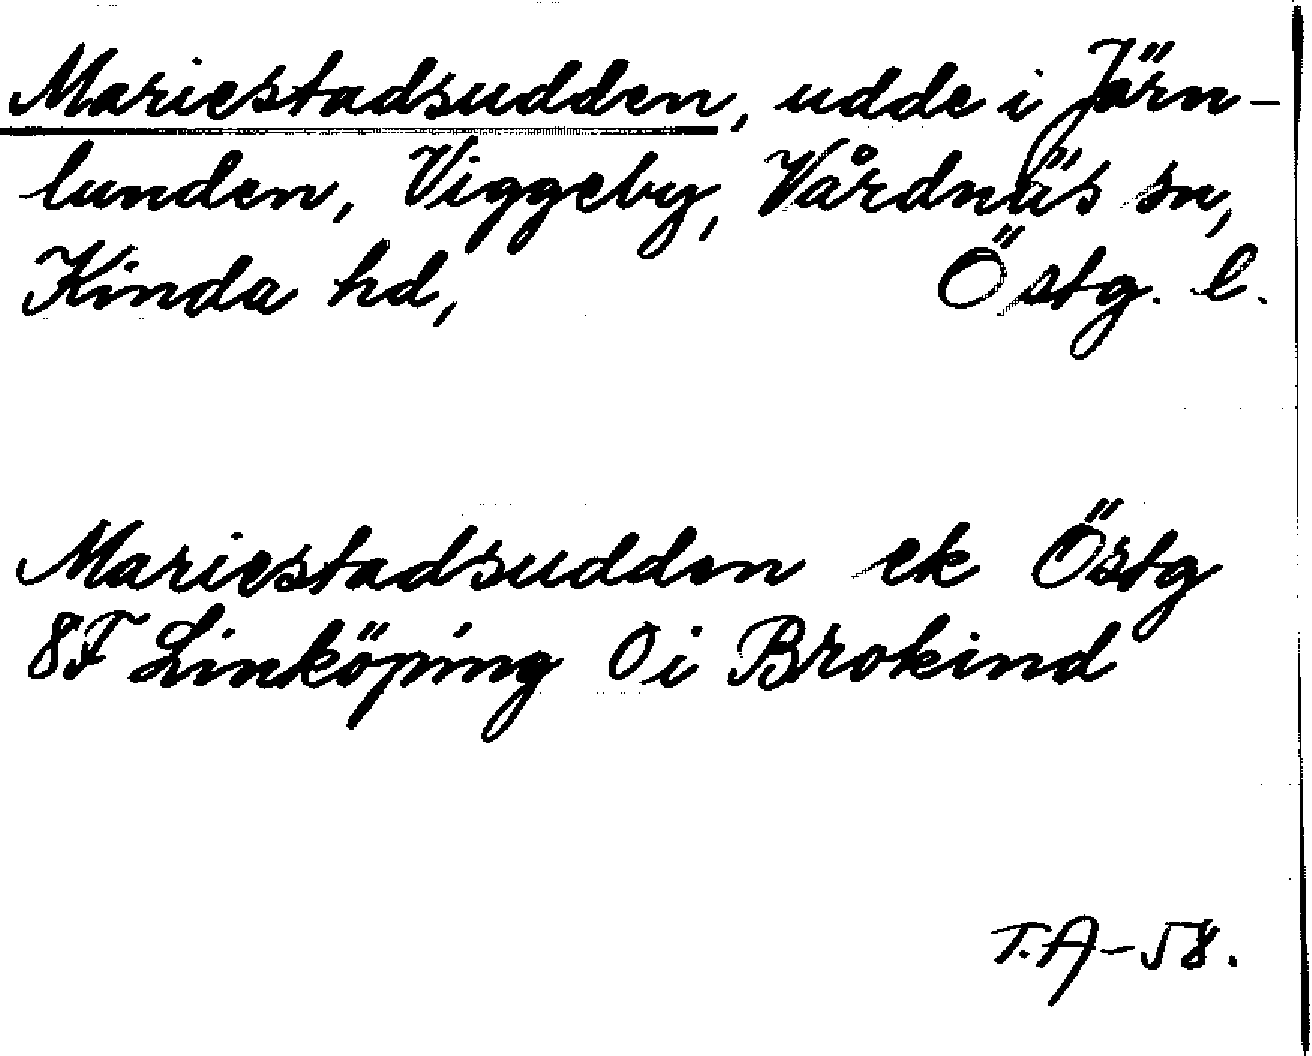 Mariestadsudden, udde i Järn-
lunden, Viggeby, Vårdnäs sn,
Kinda hd, Östg. l.
Mariestadsudden ek Östg
8F Linköping Öi Brokind
T.A-58.